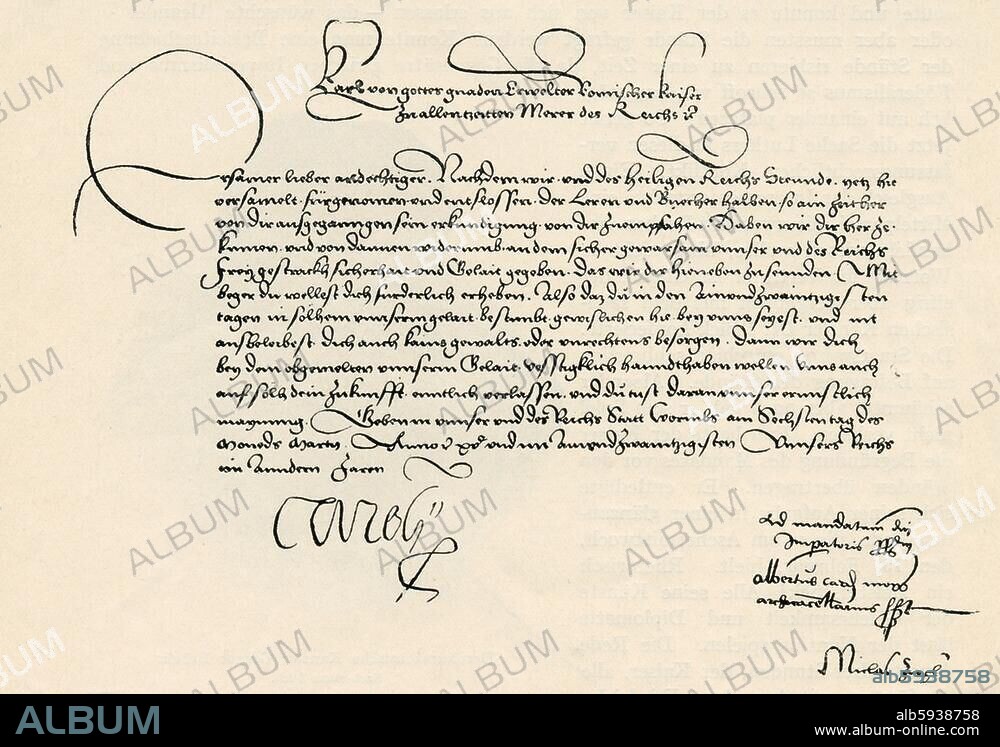 Karl von gottes gnaden Erwelter Romischer Kaiser
Zu allen zeitten Merer des Reichs etc
Ersamer lieber andechtiger. Nachdem wir und des heiligen Reichs Stennde, yetz hie
versamelt, fürgenomen und entslossen, der Leren und Buecher halben, so ain zeither
von dir ausgegangen sein erkundigung von dir zuempfahen. Haben wir dir her ze
kumen, und von dannen widerumb an dein sicher gewarsam unnser und des Reichs
Frey gestrackh sicherhait und Gelait gegeben, das wir dir hieneben zusennden Mit
beger du wellest dich fürderlich erheben. Also daz du in den Ainundzwaintzigisten
tagen in solhem unnserm gelait bestimbt gewislichen hie bey unns seyest, und nit
ausbleibest dich auch kains gewalts oder unrechtens besorgen. Dann wir dich
bey dem obgemelten unnserm Gelait vesstigklich hanndthaben wellen, Uns auch
auf solh dein zukunfft enntlich verlassen, und du tust daran unser ernnstlich
maynung. Geben in unnser und des Reichs Statt Wormbs am Sechsten tag des
Monads Marty. Anno etc xvc und im Ainundzwaintzigisten Unnsers Reichs
im Anndern Jaren
Carolus
Ad mandatum dni
Imperatoris ppm
Albertus card mogo
archicancellarius sst
Niclas
alb5938758
ALBUM
alb5938758
www.album-online.com